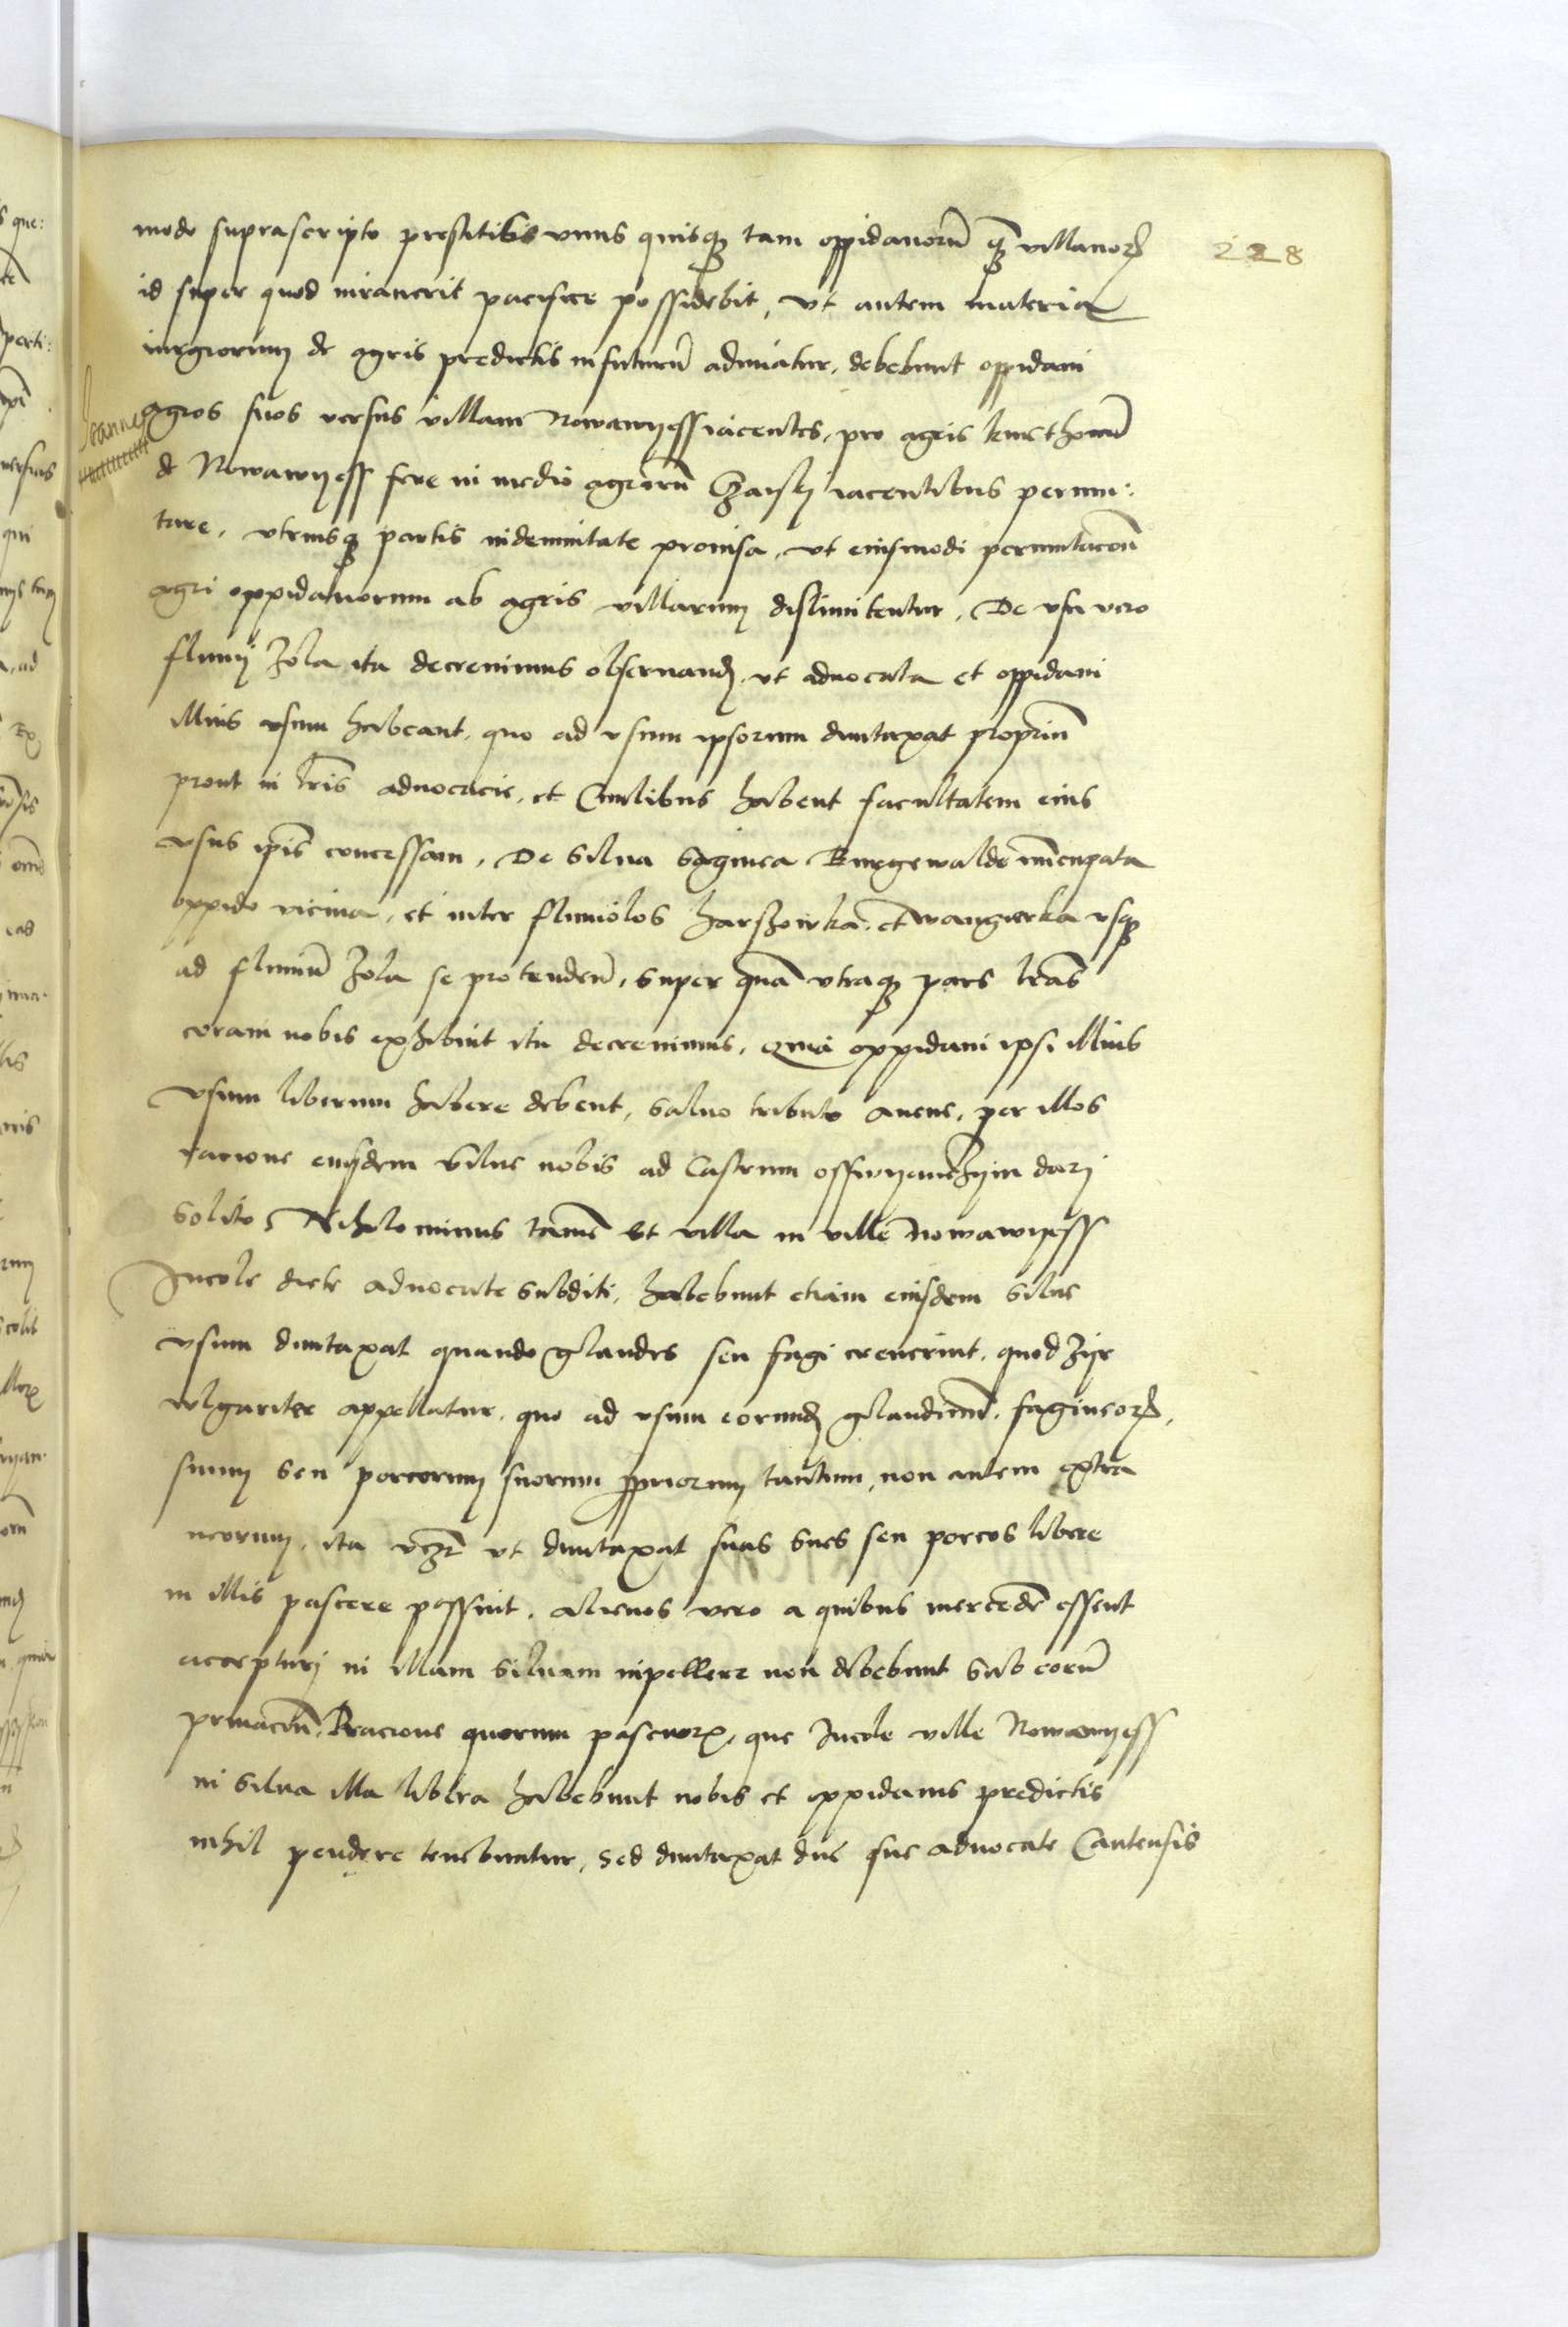 228
modo suprascripto prestitis vnus quisq tam oppidanorū q villanorꝝ
id super quod iuraverit pacifice possidebit, vt autem materia
iurgiorum de agris predictis in futurū adimatur, debebunt oppidani
Joannes
agros suos versus villam Nowawyess iacentes, pro agris kmethonū
de Nowawyess fere in medio agrorū iacentibus permu:
tare, vtriusq partis indemnitate provisa, vt eiusmodi permutacoē
agri oppidanorum ab agris villarum dislimitentur. De vsu vero
fluuij Zola ita decreuimus obseruand, vt aduocata et oppidani
illius vsum habeant, quo ad vsum ipsorum duntaxat propriū
prout in lris aduocacie, et Ciuilibus habent facultatem eius
vsus ipis concessam. De silua faginea nūcupata
oppido vicina, et inter fluuiolos et vsq
ad fluuiū Zola se protenden, super quā vtraq pars lras
coram nobis exhibuit ita decreuimus, Quia oppidani ipsi illius
vsum liberum habere debent, saluo tributo auene, per illos
racione eiusdem silue nobis ad Castrum ossuyanczym dari
solito, Nihilominus tamē et villa in ville nowawyess
Incole dicte aduocate subditi, habebunt etiam eiusdem silue
vsum duntaxat quando glandes seu fagi creuerint, quod Zyr
wlgariter appellatur, quo ad vsum eorund glandium, fagineorꝝ,
suum seu porcorum suorum ppriorum tantum, non autem extra
neorum, ita vcꝫ vt duntaxat suas sues seu porcos libere
in illis pascere possint, alienos vero a quibus mercedē essent
accepturi in illam siluam inpellere non debebunt sub eorū
priuacōe. Racione quorum pascuorꝝ, que Incole ville Nowawyess
in silua illa libera habebunt nobis et oppidanis predictis
nihil pendere tenebuntur, sed duntaxat dne sue aduocate